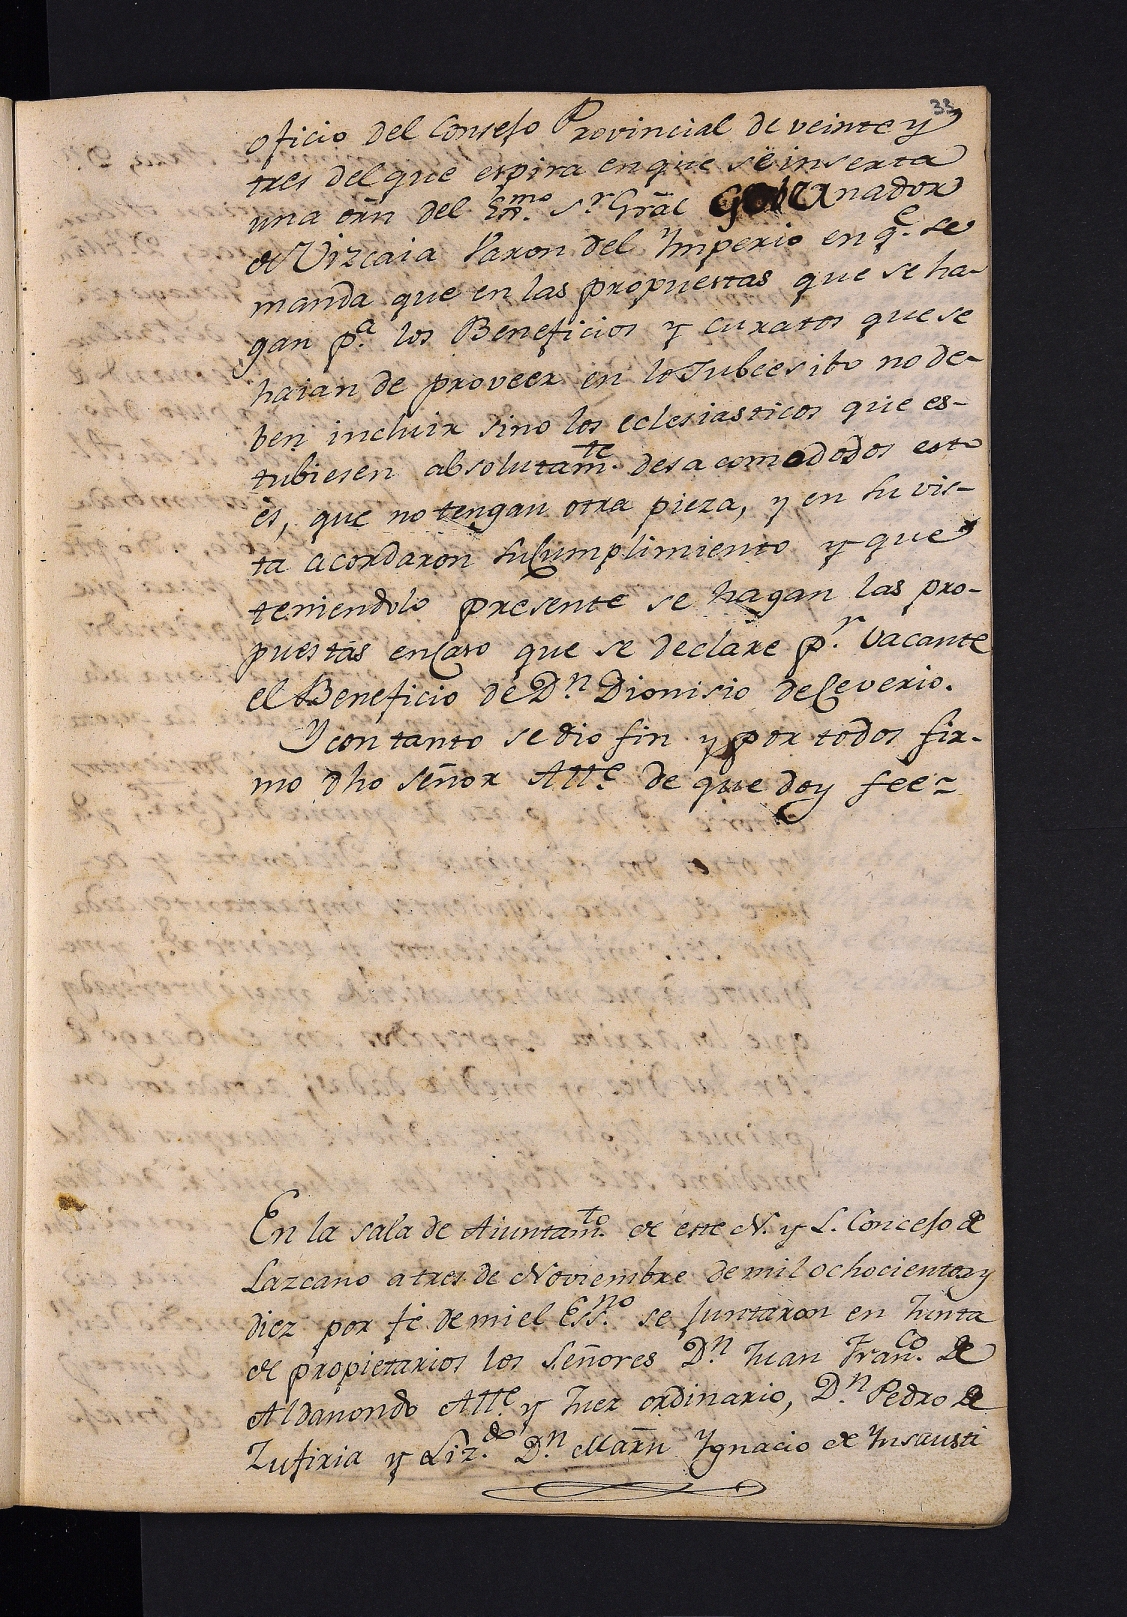 33
oficio del Consejo Provincial de veinte y
tres del que espira en que se inserta
una orñ del Exmo. Sr. Gral Gobernador
de Vizcaia Varon del Ymperio en qe. se
manda que en las propuestas que se ha-
gan pa. los Beneficios y curatos que se
haian de proveer en lo Subcesibo no de-
ben incluir sino los eclesiasticos que es-
tubiesen absolutamte. desacomododos esto
es, que no tengan otra pieza, y en su vis-
ta acordaron su Cumplimiento y que
teniendolo presente se hagan las pro-
puestas en Caso que se declare pr. vacante
el Beneficio de Dn Dionisio de Ceverio.
Y con tanto se dio fin y por todos fir-
mo dho señor Alle. de que doy fee=
En la sala de Aiuntamto. de este N. y L. Concejo de
Lazcano a tres de Noviembre de mil ochocientos y
diez por fe de mi el Essno. se juntaron en Junta
de propietarios los Señores Dn. Juan Franco. de
Aldanondo Alle. y Juez ordinario, Dn. Pedro de
Zufiria y Lizdo. Dn. Marñ Ygnacio de Ynsausti